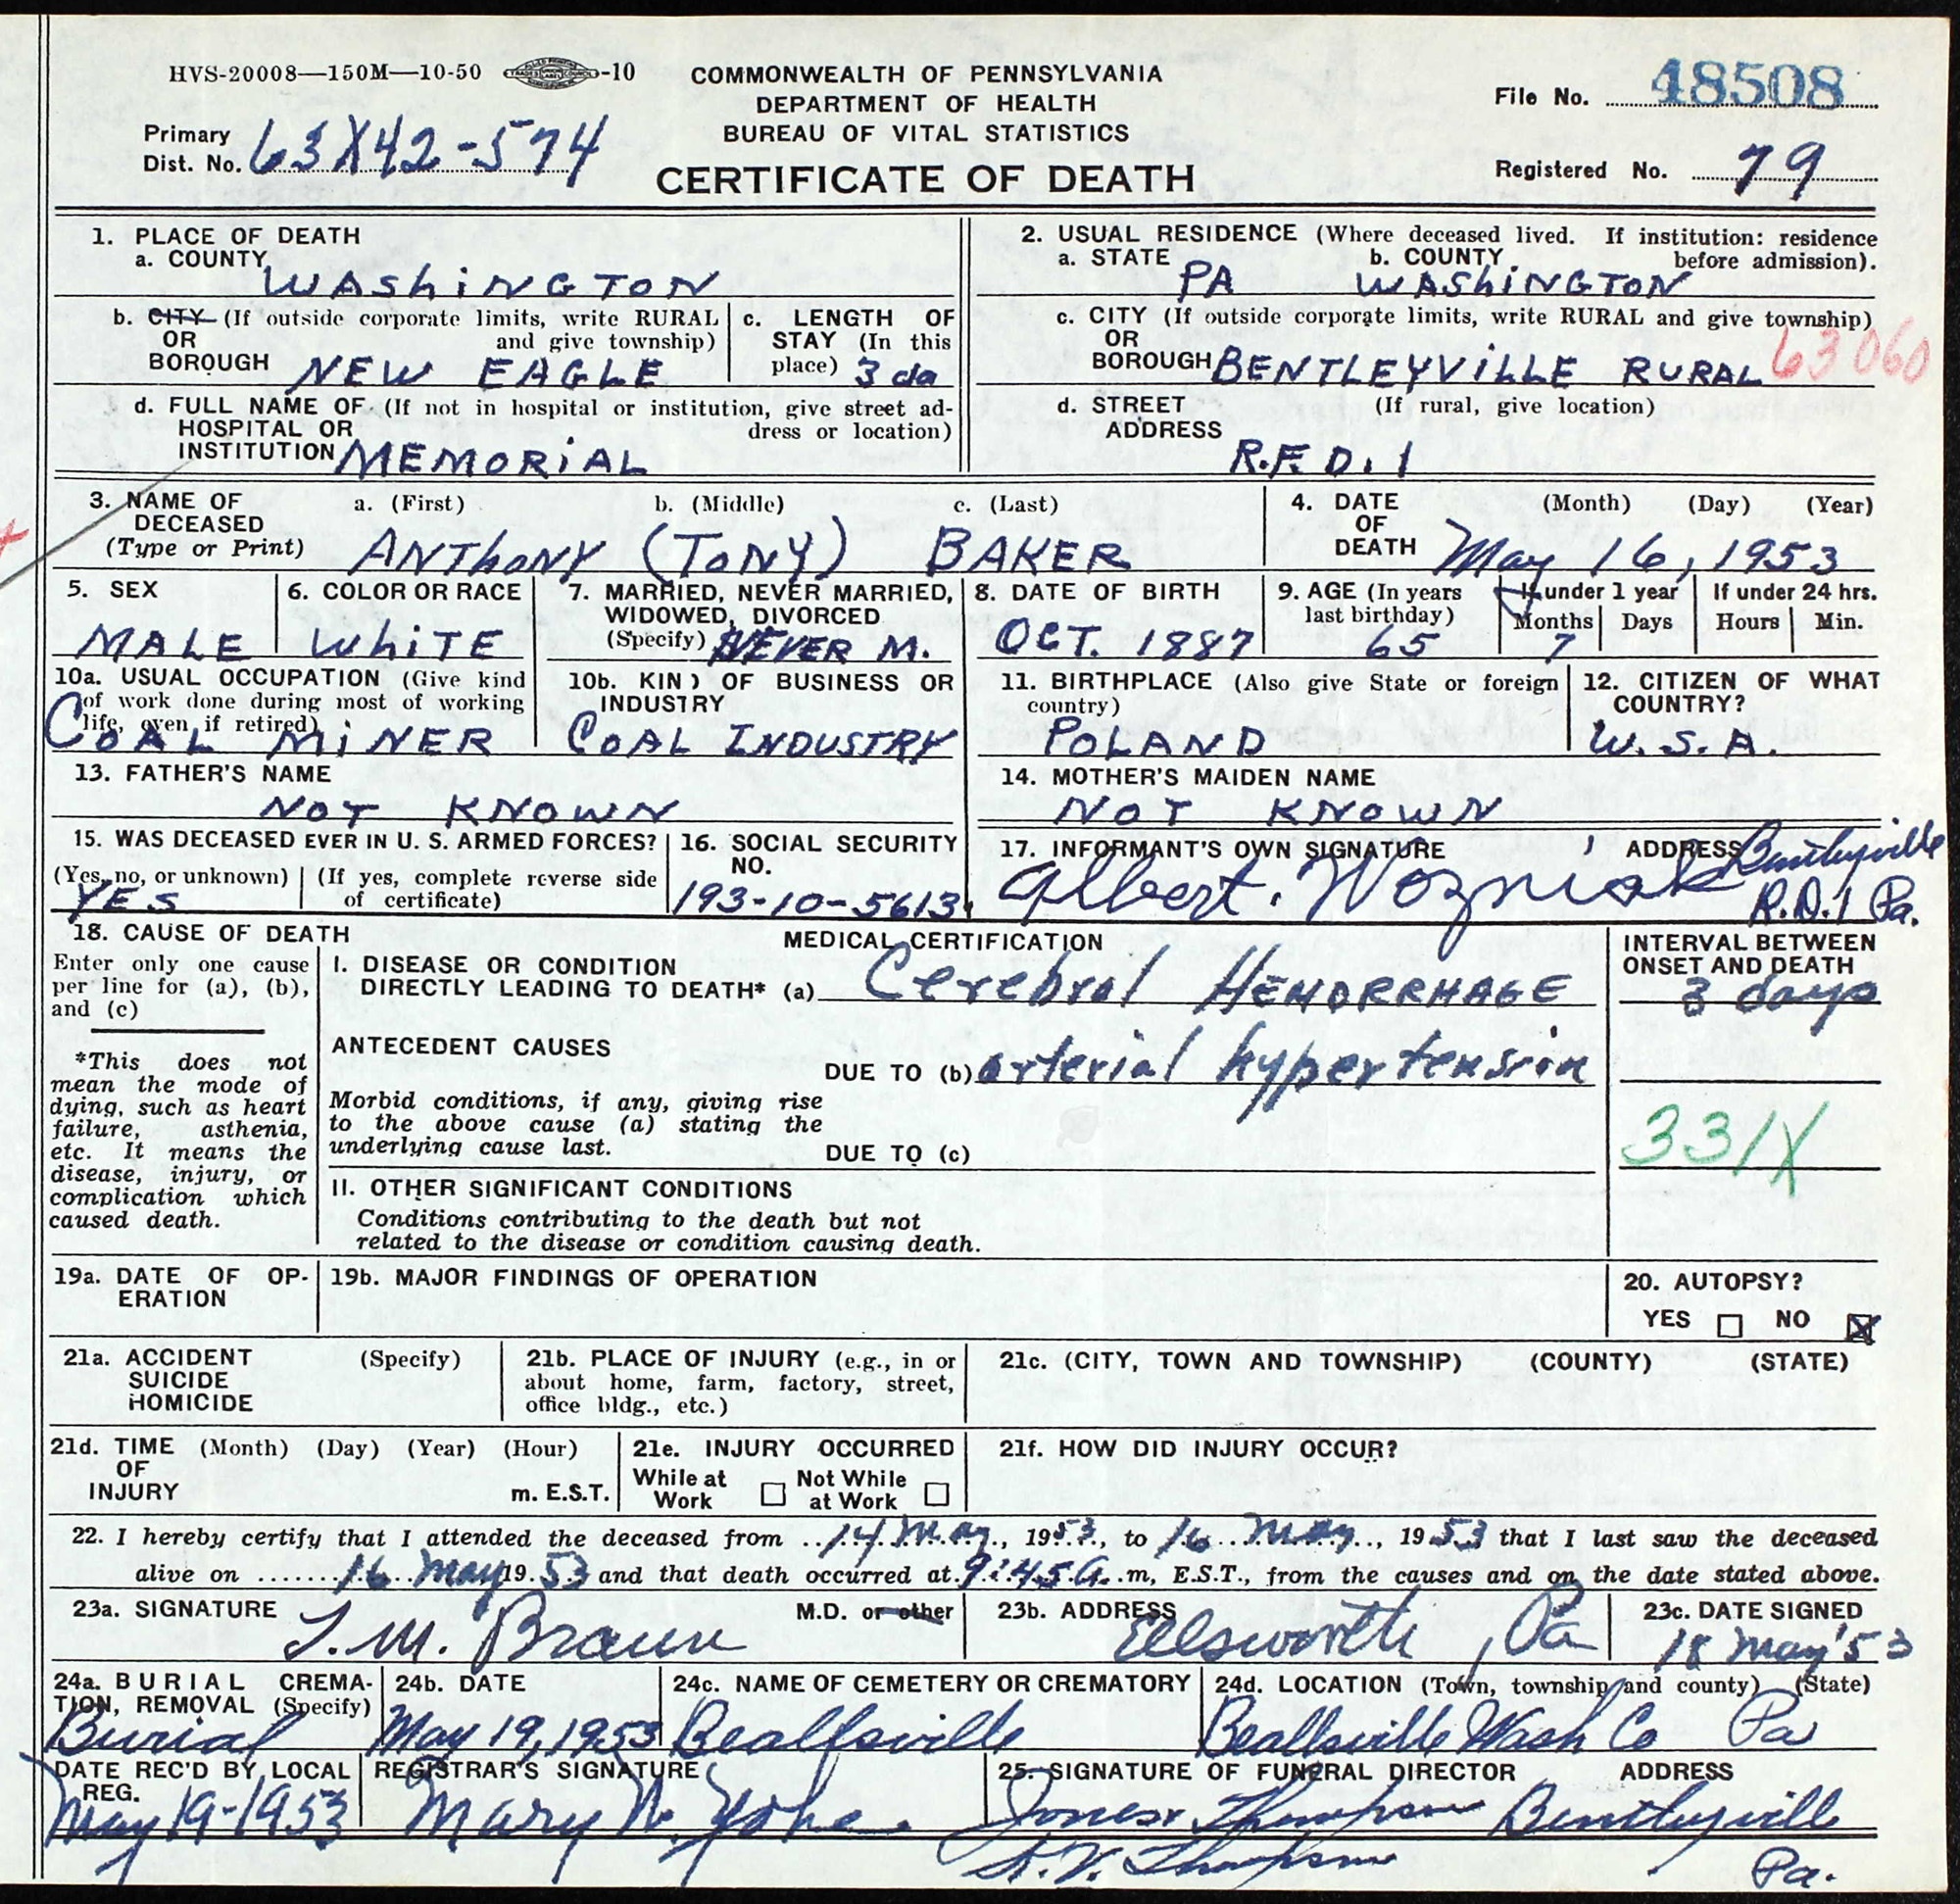 HVS-20008—150M—10-50 -10
COMMONWEALTH OF PENNSYLVANIA
DEPARTMENT OF HEALTH
BUREAU OF VITAL STATISTICS
CERTIFICATE OF DEATH
File No. 48508
Primary
Dist. No. 63X42-574
Registered No. 79
1. PLACE OF DEATH
a. COUNTY
WAShiNGTON
b. CITY (If outside corporate limits, write RURAL
OR and give township)
BOROUGH NEW EAGLE
c. LENGTH OF
STAY (In this
place) 3 da
d. FULL NAME OF (If not in hospital or institution, give street ad-
HOSPITAL OR dress or location)
INSTITUTION MEMORiAL
2. USUAL RESIDENCE (Where deceased lived. If institution: residence
a. STATE b. COUNTY before admission).
PA WAShiNGTON
c. CITY (If outside corporate limits, write RURAL and give township)
OR
BOROUGH BENTLEYViLLE RURAL 63060
d. STREET (If rural, give location)
ADDRESS
R.F.D. 1
3. NAME OF a. (First) b. (Middle) c. (Last)
DECEASED
(Type or Print) ANThONY (TONY) BAKER
4. DATE (Month) (Day) (Year)
OF
DEATH May 16, 1953
5. SEX
MALE
6. COLOR OR RACE
WhiTE
7. MARRIED, NEVER MARRIED,
WIDOWED, DIVORCED
(Specify) NEVER M.
8. DATE OF BIRTH
OCT. 1887
9. AGE (In years
last birthday)
65
If under 1 year
Months Days
7
If under 24 hrs.
Hours Min.
10a. USUAL OCCUPATION (Give kind
of work done during most of working
life, even if retired)
COAL MiNER
10b. KIND OF BUSINESS OR
INDUSTRY
COAL INDUSTRY
11. BIRTHPLACE (Also give State or foreign
country)
POLAND
12. CITIZEN OF WHAT
COUNTRY?
U.S.A.
13. FATHER'S NAME
NOT KNOWN
14. MOTHER'S MAIDEN NAME
NOT KNOWN
15. WAS DECEASED EVER IN U. S. ARMED FORCES?
(Yes, no, or unknown) (If yes, complete reverse side
of certificate)
YES
16. SOCIAL SECURITY
NO.
193-10-5613
17. INFORMANT'S OWN SIGNATURE ADDRESS Bentleyville
Albert. Wozniak R.D.1 Pa.
18. CAUSE OF DEATH
Enter only one cause
per line for (a), (b),
and (c)
*This does not
mean the mode of
dying, such as heart
failure, asthenia,
etc. It means the
disease, injury, or
complication which
caused death.
MEDICAL CERTIFICATION
I. DISEASE OR CONDITION
DIRECTLY LEADING TO DEATH* (a) Cerebral HEMORRHAGE
ANTECEDENT CAUSES
DUE TO (b) arterial hypertension
Morbid conditions, if any, giving rise
to the above cause (a) stating the
underlying cause last.
DUE TO (c)
II. OTHER SIGNIFICANT CONDITIONS
Conditions contributing to the death but not
related to the disease or condition causing death.
INTERVAL BETWEEN
ONSET AND DEATH
3 days
331X
19a. DATE OF OP-
ERATION
19b. MAJOR FINDINGS OF OPERATION
20. AUTOPSY?
YES NO X
21a. ACCIDENT (Specify)
SUICIDE
HOMICIDE
21b. PLACE OF INJURY (e.g., in or
about home, farm, factory, street,
office bldg., etc.)
21c. (CITY, TOWN AND TOWNSHIP) (COUNTY) (STATE)
21d. TIME (Month) (Day) (Year) (Hour)
OF
INJURY m. E.S.T.
21e. INJURY OCCURRED
While at Not While
Work at Work
21f. HOW DID INJURY OCCUR?
22. I hereby certify that I attended the deceased from 14 May, 1953, to 16 May, 1953 that I last saw the deceased
alive on 16 May 1953 and that death occurred at 9:45 a. m, E.S.T., from the causes and on the date stated above.
23a. SIGNATURE M.D. or other
J. M. Braun
23b. ADDRESS
Ellsworth, Pa
23c. DATE SIGNED
18 May '53
24a. BURIAL CREMA-
TION, REMOVAL (Specify)
Burial
24b. DATE
May 19, 1953
24c. NAME OF CEMETERY OR CREMATORY
Beallsville
24d. LOCATION (Town, township and county) (State)
Beallsville Wash Co Pa
DATE REC'D BY LOCAL
REG.
May 19-1953
REGISTRAR'S SIGNATURE
Mary N. Yohe
25. SIGNATURE OF FUNERAL DIRECTOR ADDRESS
Jones & Thompson Bentleyville
Thompson Pa.